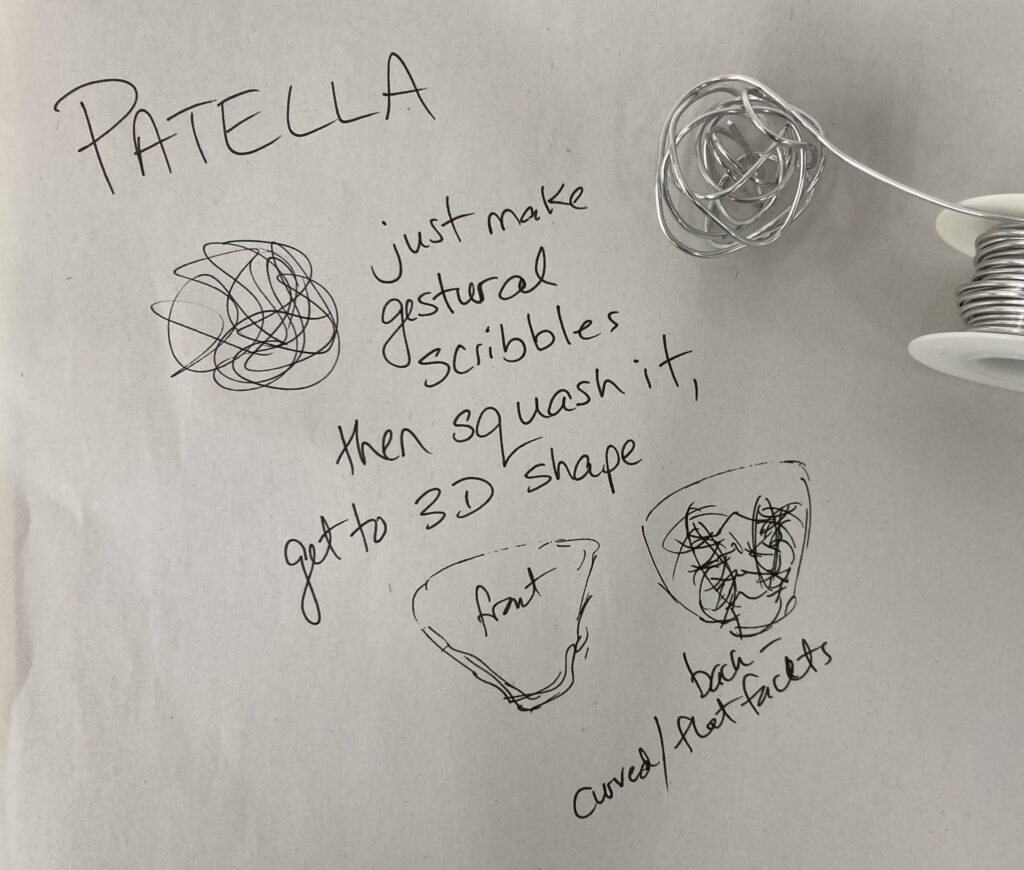 PATELLA
just make
gestural
scribbles
then squash it,
get to 3D shape
front
back -
curved/flat facets